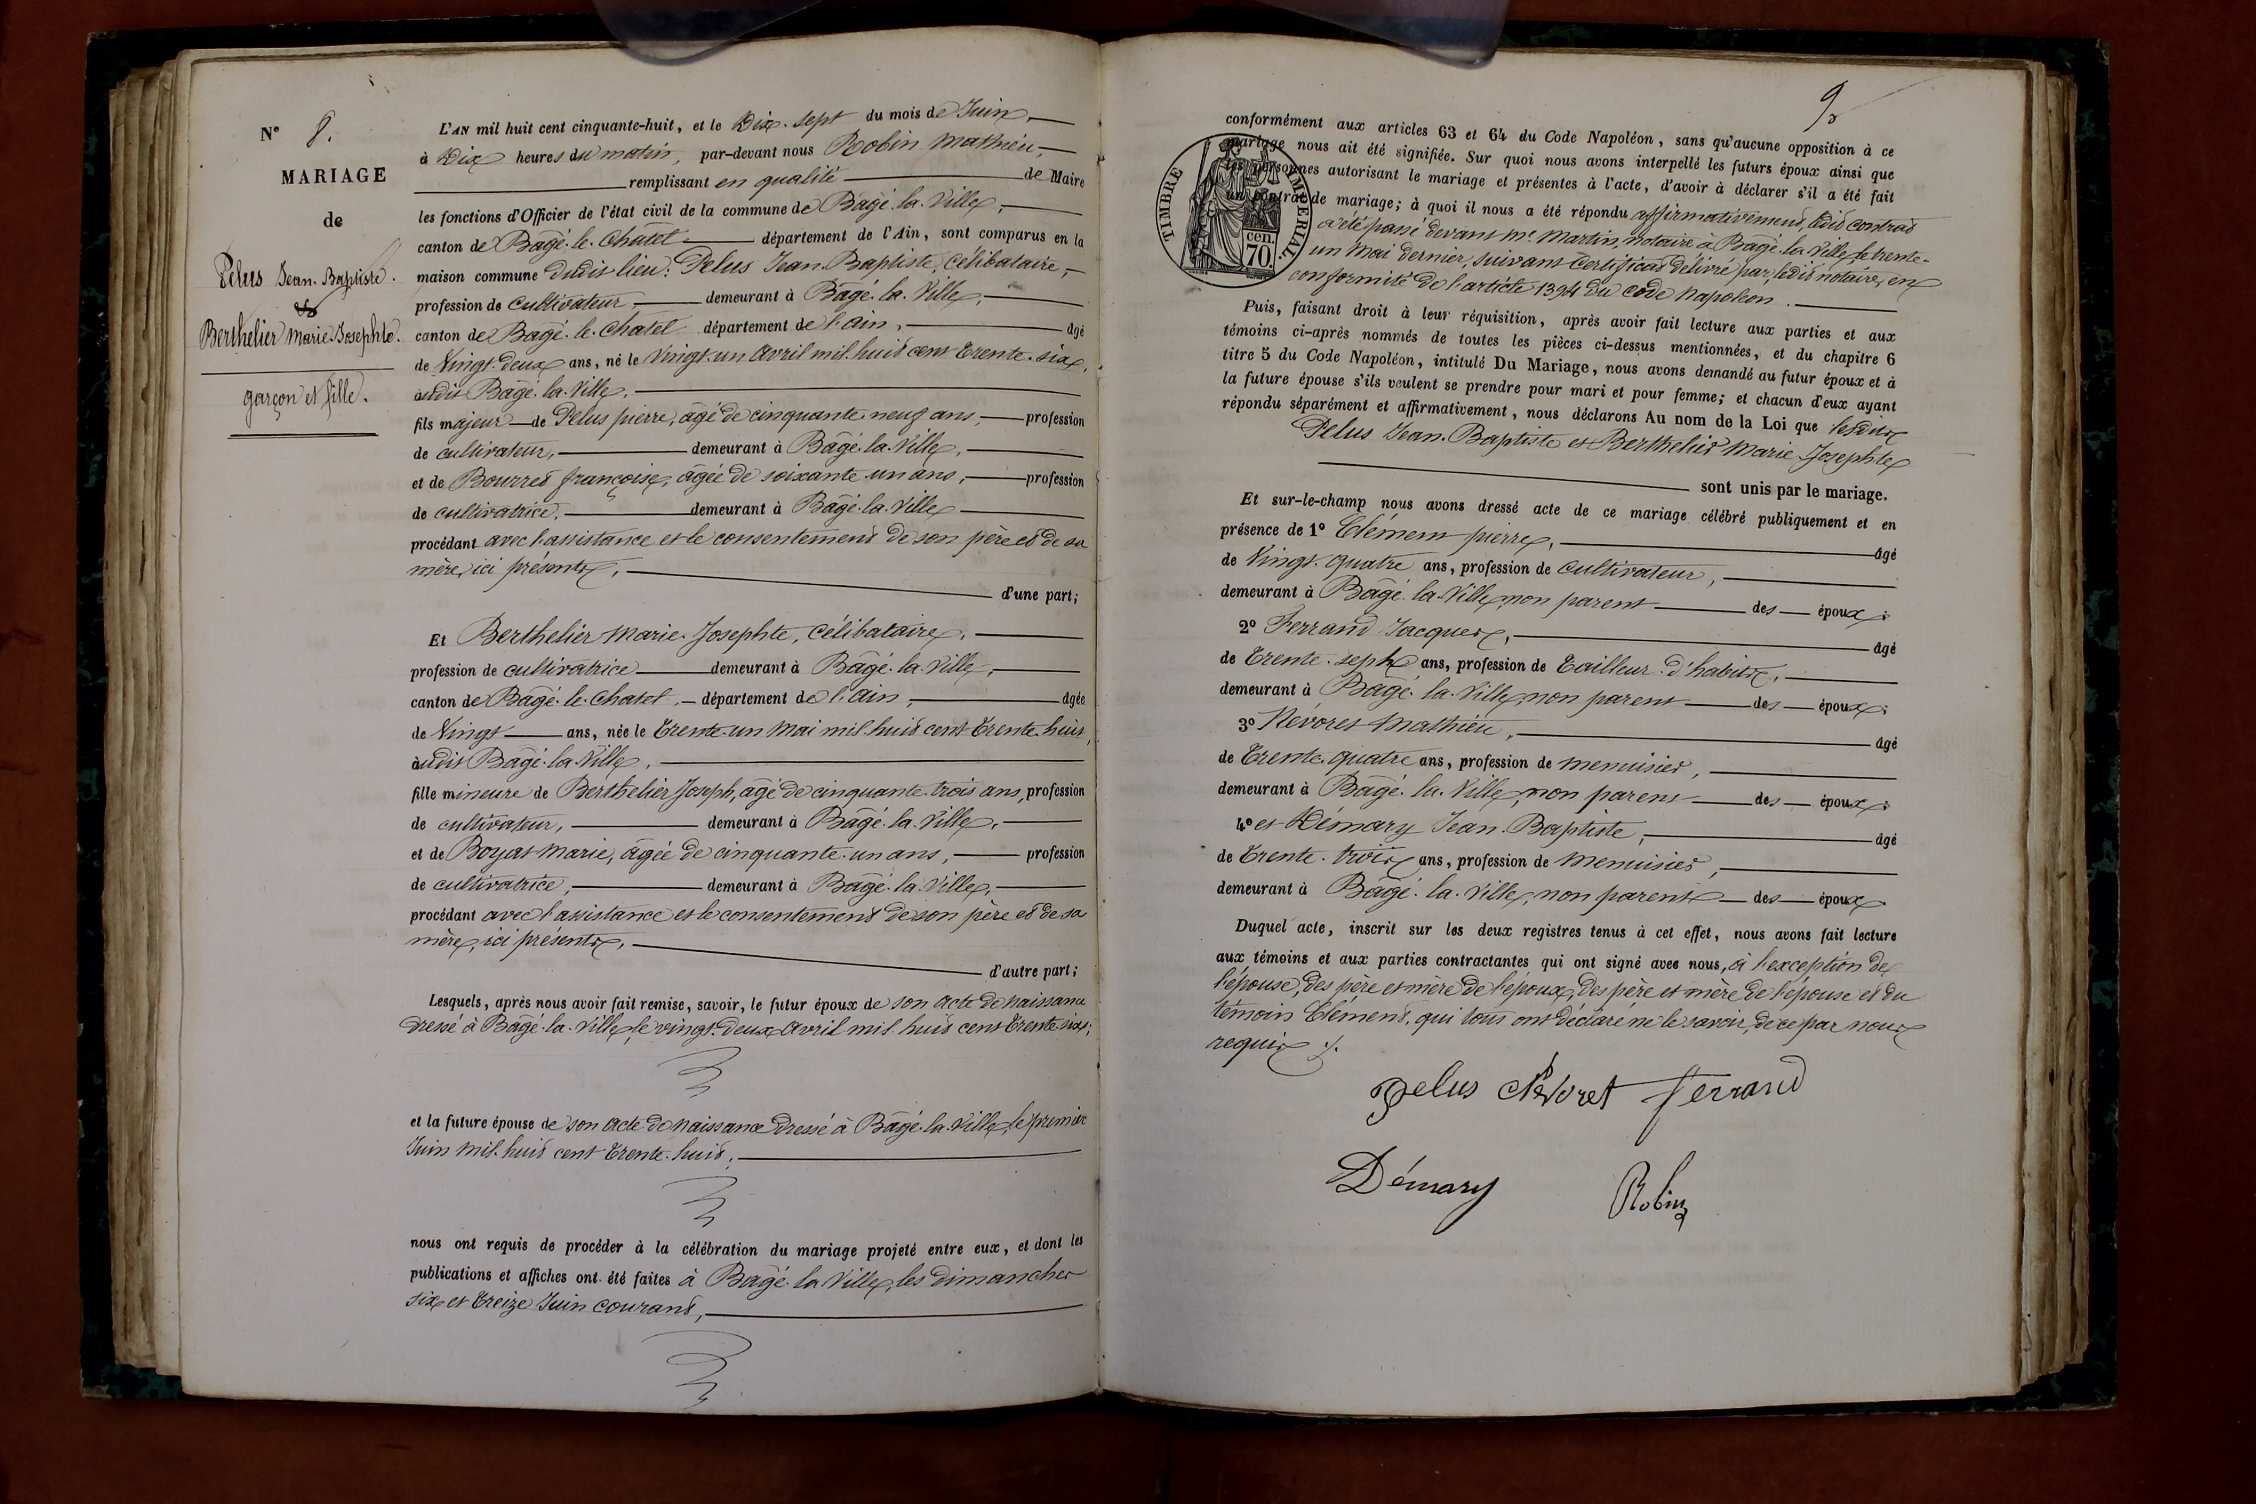 N° 8.
MARIAGE
de
Pelus Jean-Baptiste.
et
Berthelier Marie-Josephte.
garçon et fille.
L'AN mil huit cent cinquante-huit, et le Dix-sept du mois de Juin,
à Dix heures du matin, par-devant nous Robin Mathieu,
remplissant en qualité de Maire
les fonctions d'Officier de l'état civil de la commune de Bâgé-la-Ville,
canton de Bâgé-le-Châtel département de l'Ain, sont comparus en la
maison commune dudit lieu: Pelus Jean-Baptiste, célibataire,
profession de cultivateur demeurant à Bâgé-la-Ville,
canton de Bâgé-le-Chatel département de l'Ain, âgé
de Vingt-deux ans, né le vingt-un Avril mil-huit cent trente-six,
àudit Bâgé-la-Ville,
fils majeur de Pelus pierre, âgé de cinquante-neuf ans, profession
de cultivateur, demeurant à Bâgé-la-Ville,
et de Bourret françoise, âgée de soixante-un ans, profession
de cultivatrice, demeurant à Bâgé-la-Ville
procédant avec l'assistance et le consentement de son père et de sa
mère, ici présents,
d'une part;
Et Berthelier Marie-Josephte, célibataire,
profession de cultivatrice demeurant à Bâgé-la-Ville,
canton de Bâgé-le-Chatel, département de l'Ain, âgée
de Vingt ans, née le trente-un Mai mil-huit cent trente-huit,
àudit Bâgé-la-Ville,
fille mineure de Berthelier Joseph, âgé de cinquante-trois ans, profession
de cultivateur, demeurant à Bâgé-la-Ville,
et de Boyat Marie, âgée de cinquante-un ans, profession
de cultivatrice, demeurant à Bâgé-la-Ville,
procédant avec l'assistance et le consentement de son père et de sa
mère, ici présents,
d'autre part;
Lesquels, après nous avoir fait remise, savoir, le futur époux de son Acte de naissance
dressé à Bâgé-la-Ville, le vingt-deux Avril mil-huit cent trente-six;
et la future épouse de son Acte de naissance dressé à Bâgé-la-Ville, le premier
Juin mil-huit cent trente-huit;
nous ont requis de procéder à la célébration du mariage projeté entre eux, et dont les
publications et affiches ont été faites à Bâgé-la-Ville, les dimanches
six et treize Juin courant,
9
TIMBRE IMPERIAL
70 cen.
conformément aux articles 63 et 64 du Code Napoléon, sans qu'aucune opposition à ce
mariage nous ait été signifiée. Sur quoi nous avons interpellé les futurs époux ainsi que
les personnes autorisant le mariage et présentes à l'acte, d'avoir à déclarer s'il a été fait
un contrat de mariage; à quoi il nous a été répondu affirmativement, ledit contrat
a été passé devant Me Martin, notaire à Bâgé-la-Ville, le trente-
un Mai dernier, suivant certificat délivré par ledit notaire, en
conformité de l'article 1394 du code Napoléon.
Puis, faisant droit à leur réquisition, après avoir fait lecture aux parties et aux
témoins ci-après nommés de toutes les pièces ci-dessus mentionnées, et du chapitre 6
titre 5 du Code Napoléon, intitulé Du Mariage, nous avons demandé au futur époux et à
la future épouse s'ils veulent se prendre pour mari et pour femme; et chacun d'eux ayant
répondu séparément et affirmativement, nous déclarons Au nom de la Loi que lesdits
Pelus Jean-Baptiste et Berthelier Marie-Josephte
sont unis par le mariage.
Et sur-le-champ nous avons dressé acte de ce mariage célébré publiquement et en
présence de 1° Clément pierre, âgé
de Vingt-quatre ans, profession de cultivateur,
demeurant à Bâgé-la-Ville, non parent des époux;
2° Ferrand Jacques, âgé
de trente-sept ans, profession de tailleur-d'habits,
demeurant à Bâgé-la-Ville, non parent des époux;
3° Névoret Mathieu, âgé
de trente-quatre ans, profession de menuisier,
demeurant à Bâgé-la-Ville, non parent des époux;
4° et Démary Jean-Baptiste, âgé
de trente-trois ans, profession de menuisier,
demeurant à Bâgé-la-Ville, non parent des époux.
Duquel acte, inscrit sur les deux registres tenus à cet effet, nous avons fait lecture
aux témoins et aux parties contractantes qui ont signé avec nous, à l'exception de
l'épouse, des père et mère de l'époux, des père et mère de l'épouse et du
témoin Clément, qui tous ont déclaré ne le savoir, de ce par nous
requis ./.
Pelus Névoret Ferrand
Démary Robin